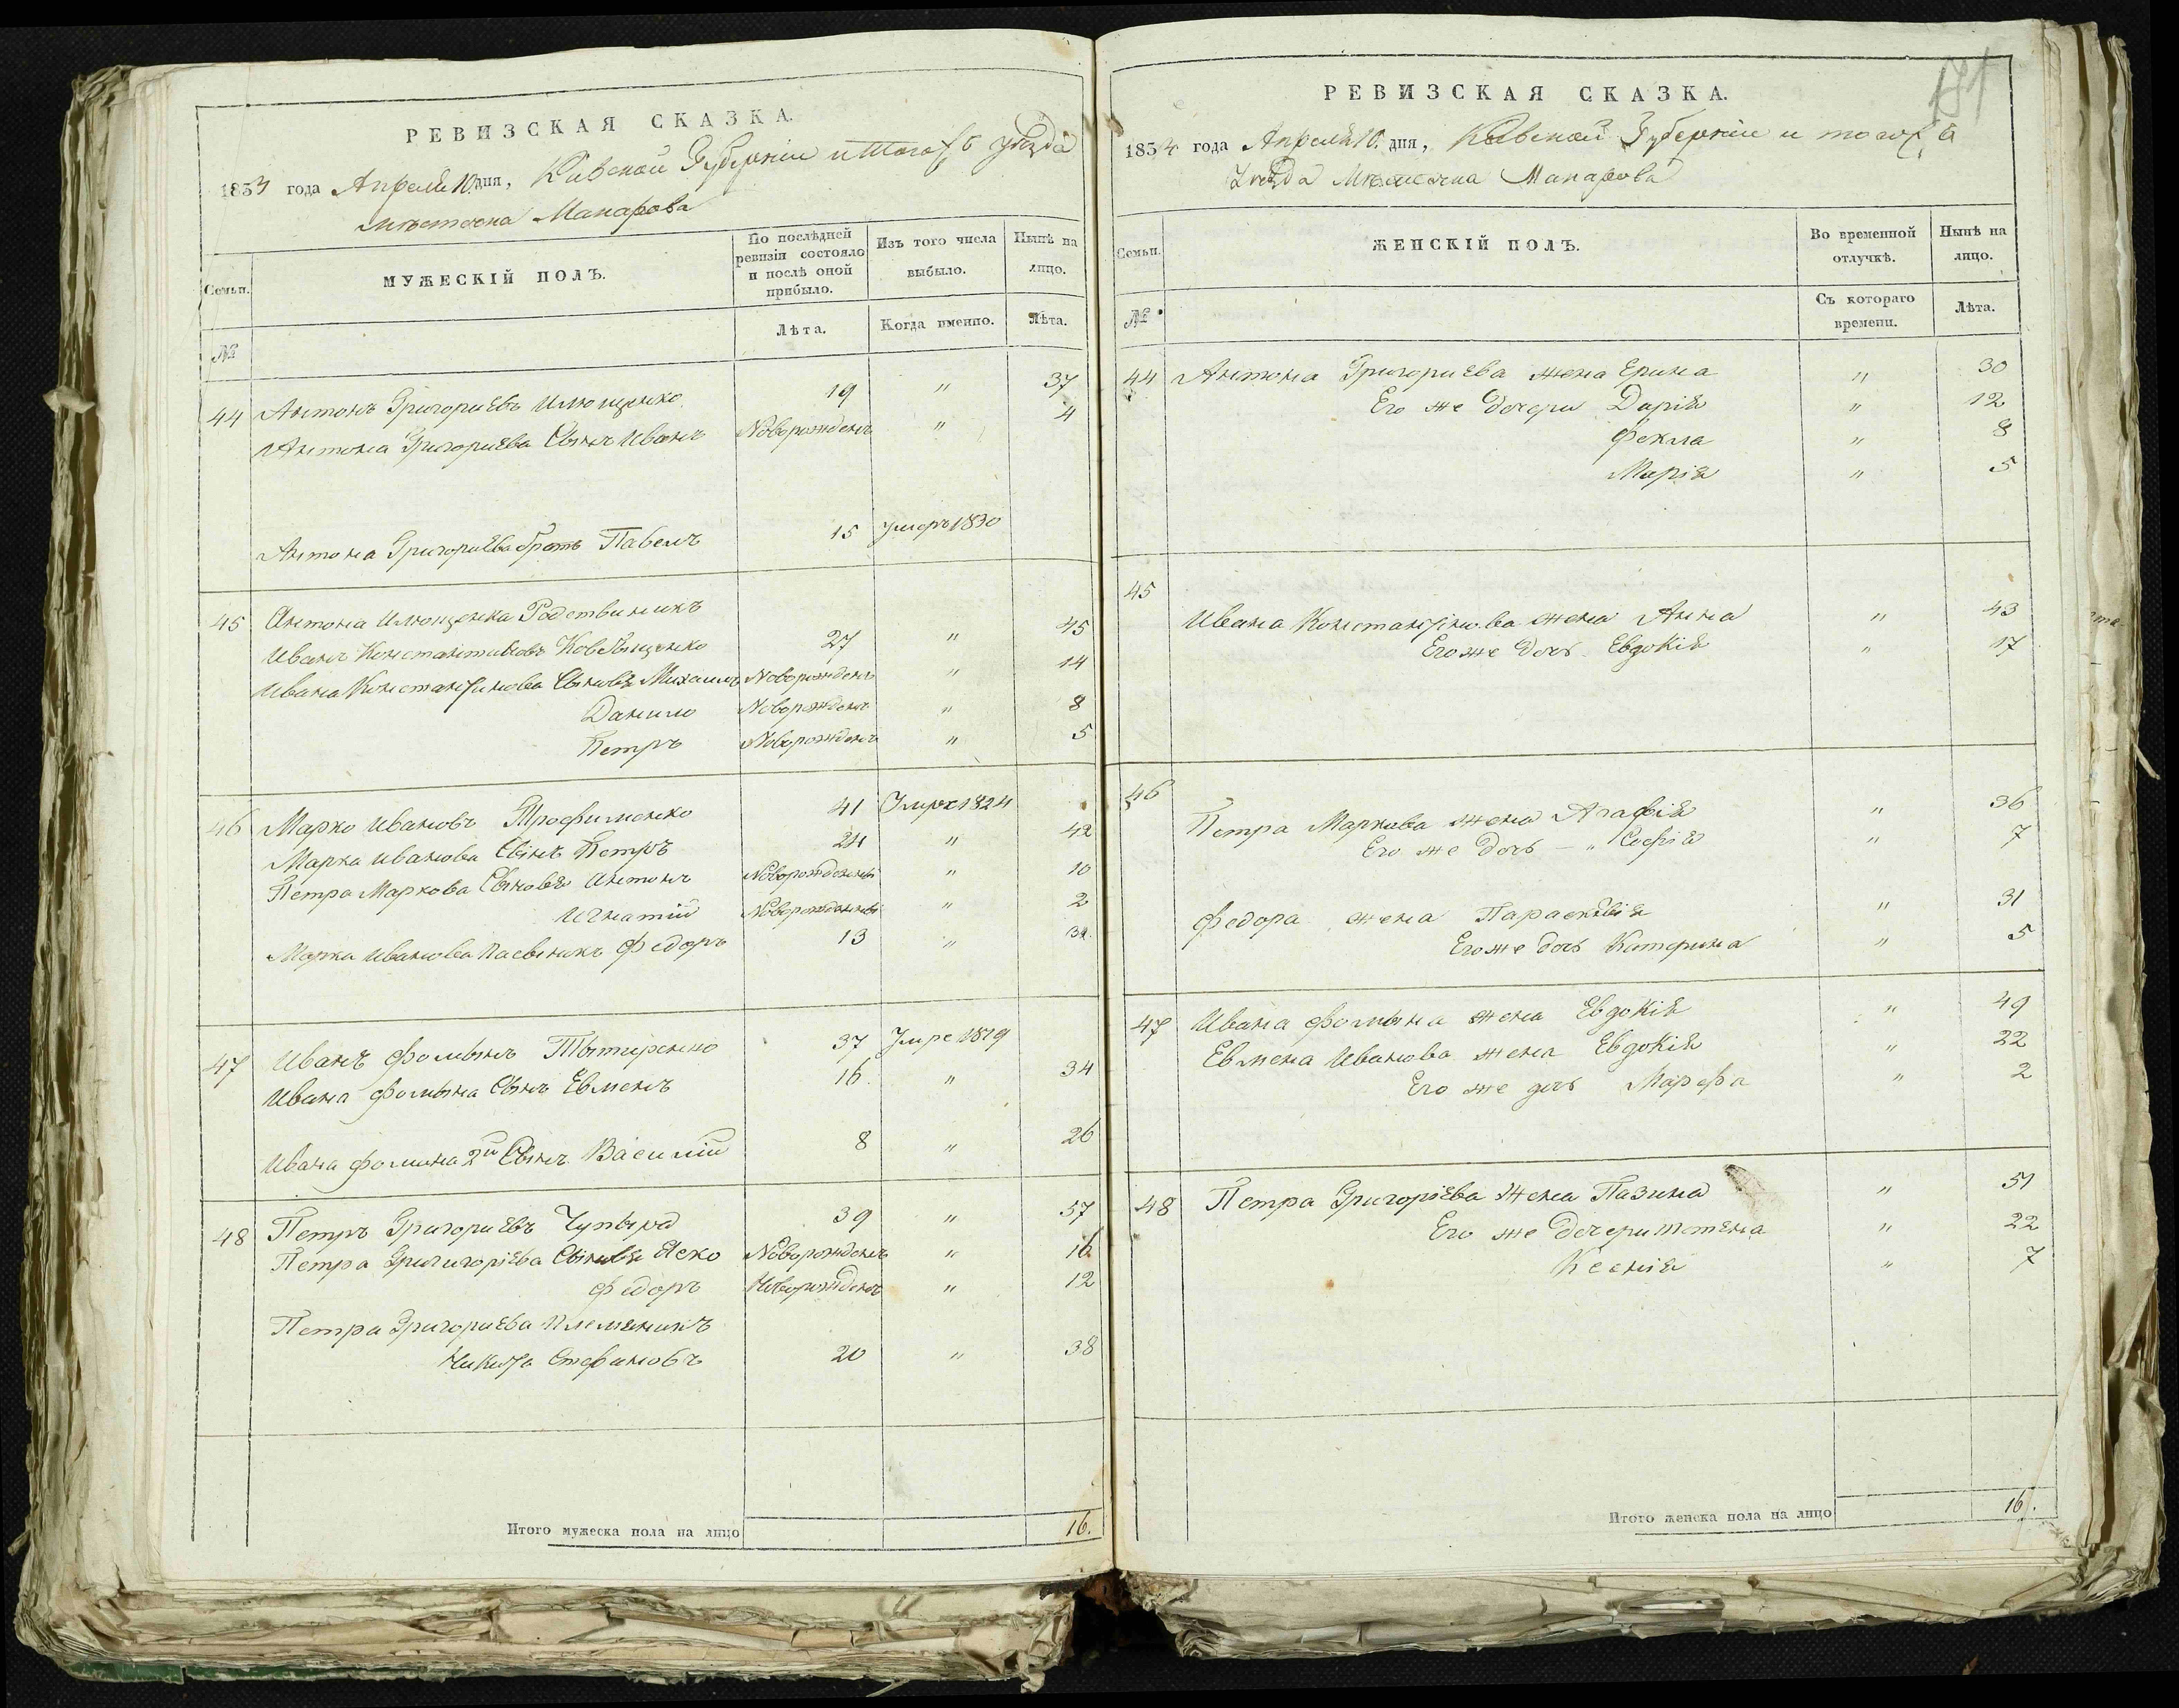 РЕВИЗСКАЯ СКАЗКА.
1834 года Апреля 10. дня, Киевской Губернии и того ж уѣзда
мѣстечка Макарова
Семьи.
МУЖЕСКІЙ ПОЛЪ.
По послѣдней ревизіи состояло и послѣ оной прибыло.
Изъ того числа выбыло.
Нынѣ на лицо.
№
Лѣта.
Когда именно.
Лѣта.
44 Антонъ Григориевъ Илющенко 19 " 37
Антона Григориева Сынъ Иванъ Новорожденъ " 4
Антона Григориева братъ Павелъ 15 умеръ 1830
45 Антона Илющенка Родственикъ
Иванъ Константиновъ 27 " 45
Ивана Константинова Сыновя Михаилъ Новорожденъ " 14
Данило Новорожденъ " 8
Петръ Новорожденъ " 5
46 Марко Ивановъ Трофименко 41 Умре 1824
Марка Иванова Сынъ Петръ 24 " 42
Петра Маркова Сыновя Антонъ Новорожденны " 10
Игнатій Новорожденны " 2
Марка Иванова Пасыникъ Федоръ 13 " 31.
47 Иванъ Фоминъ 37 Умре 1819
Ивана Фомина Сынъ Евменъ 16. " 34
Ивана Фомина 2й Сынъ Василій 8 " 26
48 Петръ Григориевъ Чупыра 39 " 57
Петра Григигоріева Сыновя Яско Новорожденъ " 16.
Федоръ Новорожденъ " 12
Петра Григориева Племяникъ
Никита Стефановъ 20 " 38
Итого мужеска пола на лицо 16.
РЕВИЗСКАЯ СКАЗКА.
1834 года Апреля 10. дня, Киевской Губернии и того ж
Уезда Мѣстечка Макарова
Семьи.
ЖЕНСКІЙ ПОЛЪ.
Во временной отлучкѣ.
Нынѣ на лицо.
№
Съ котораго времени.
Лѣта.
44 Антона Григориева жена Ерина " 30
Его же дочери Дарія " 12
Фекла " 8
Марія " 5
45
Ивана Константинова жена Анна " 43
Его же дочь Евдокія " 17
46
Петра Маркова жена Агафія " 36
Его же дочь — " Софія " 7
Федора жена Параскивія " 31
Его же дочь Катерина " 5
47 Ивана Фомына жена Евдокія " 49
Евмена Иванова жена Евдокія " 22
Его же дочь Марфа " 2
48 Петра Григоріева жена Пазина " 51
Его же дочери " 22
Ксенія " 7
Итого женска пола на лицо 16.